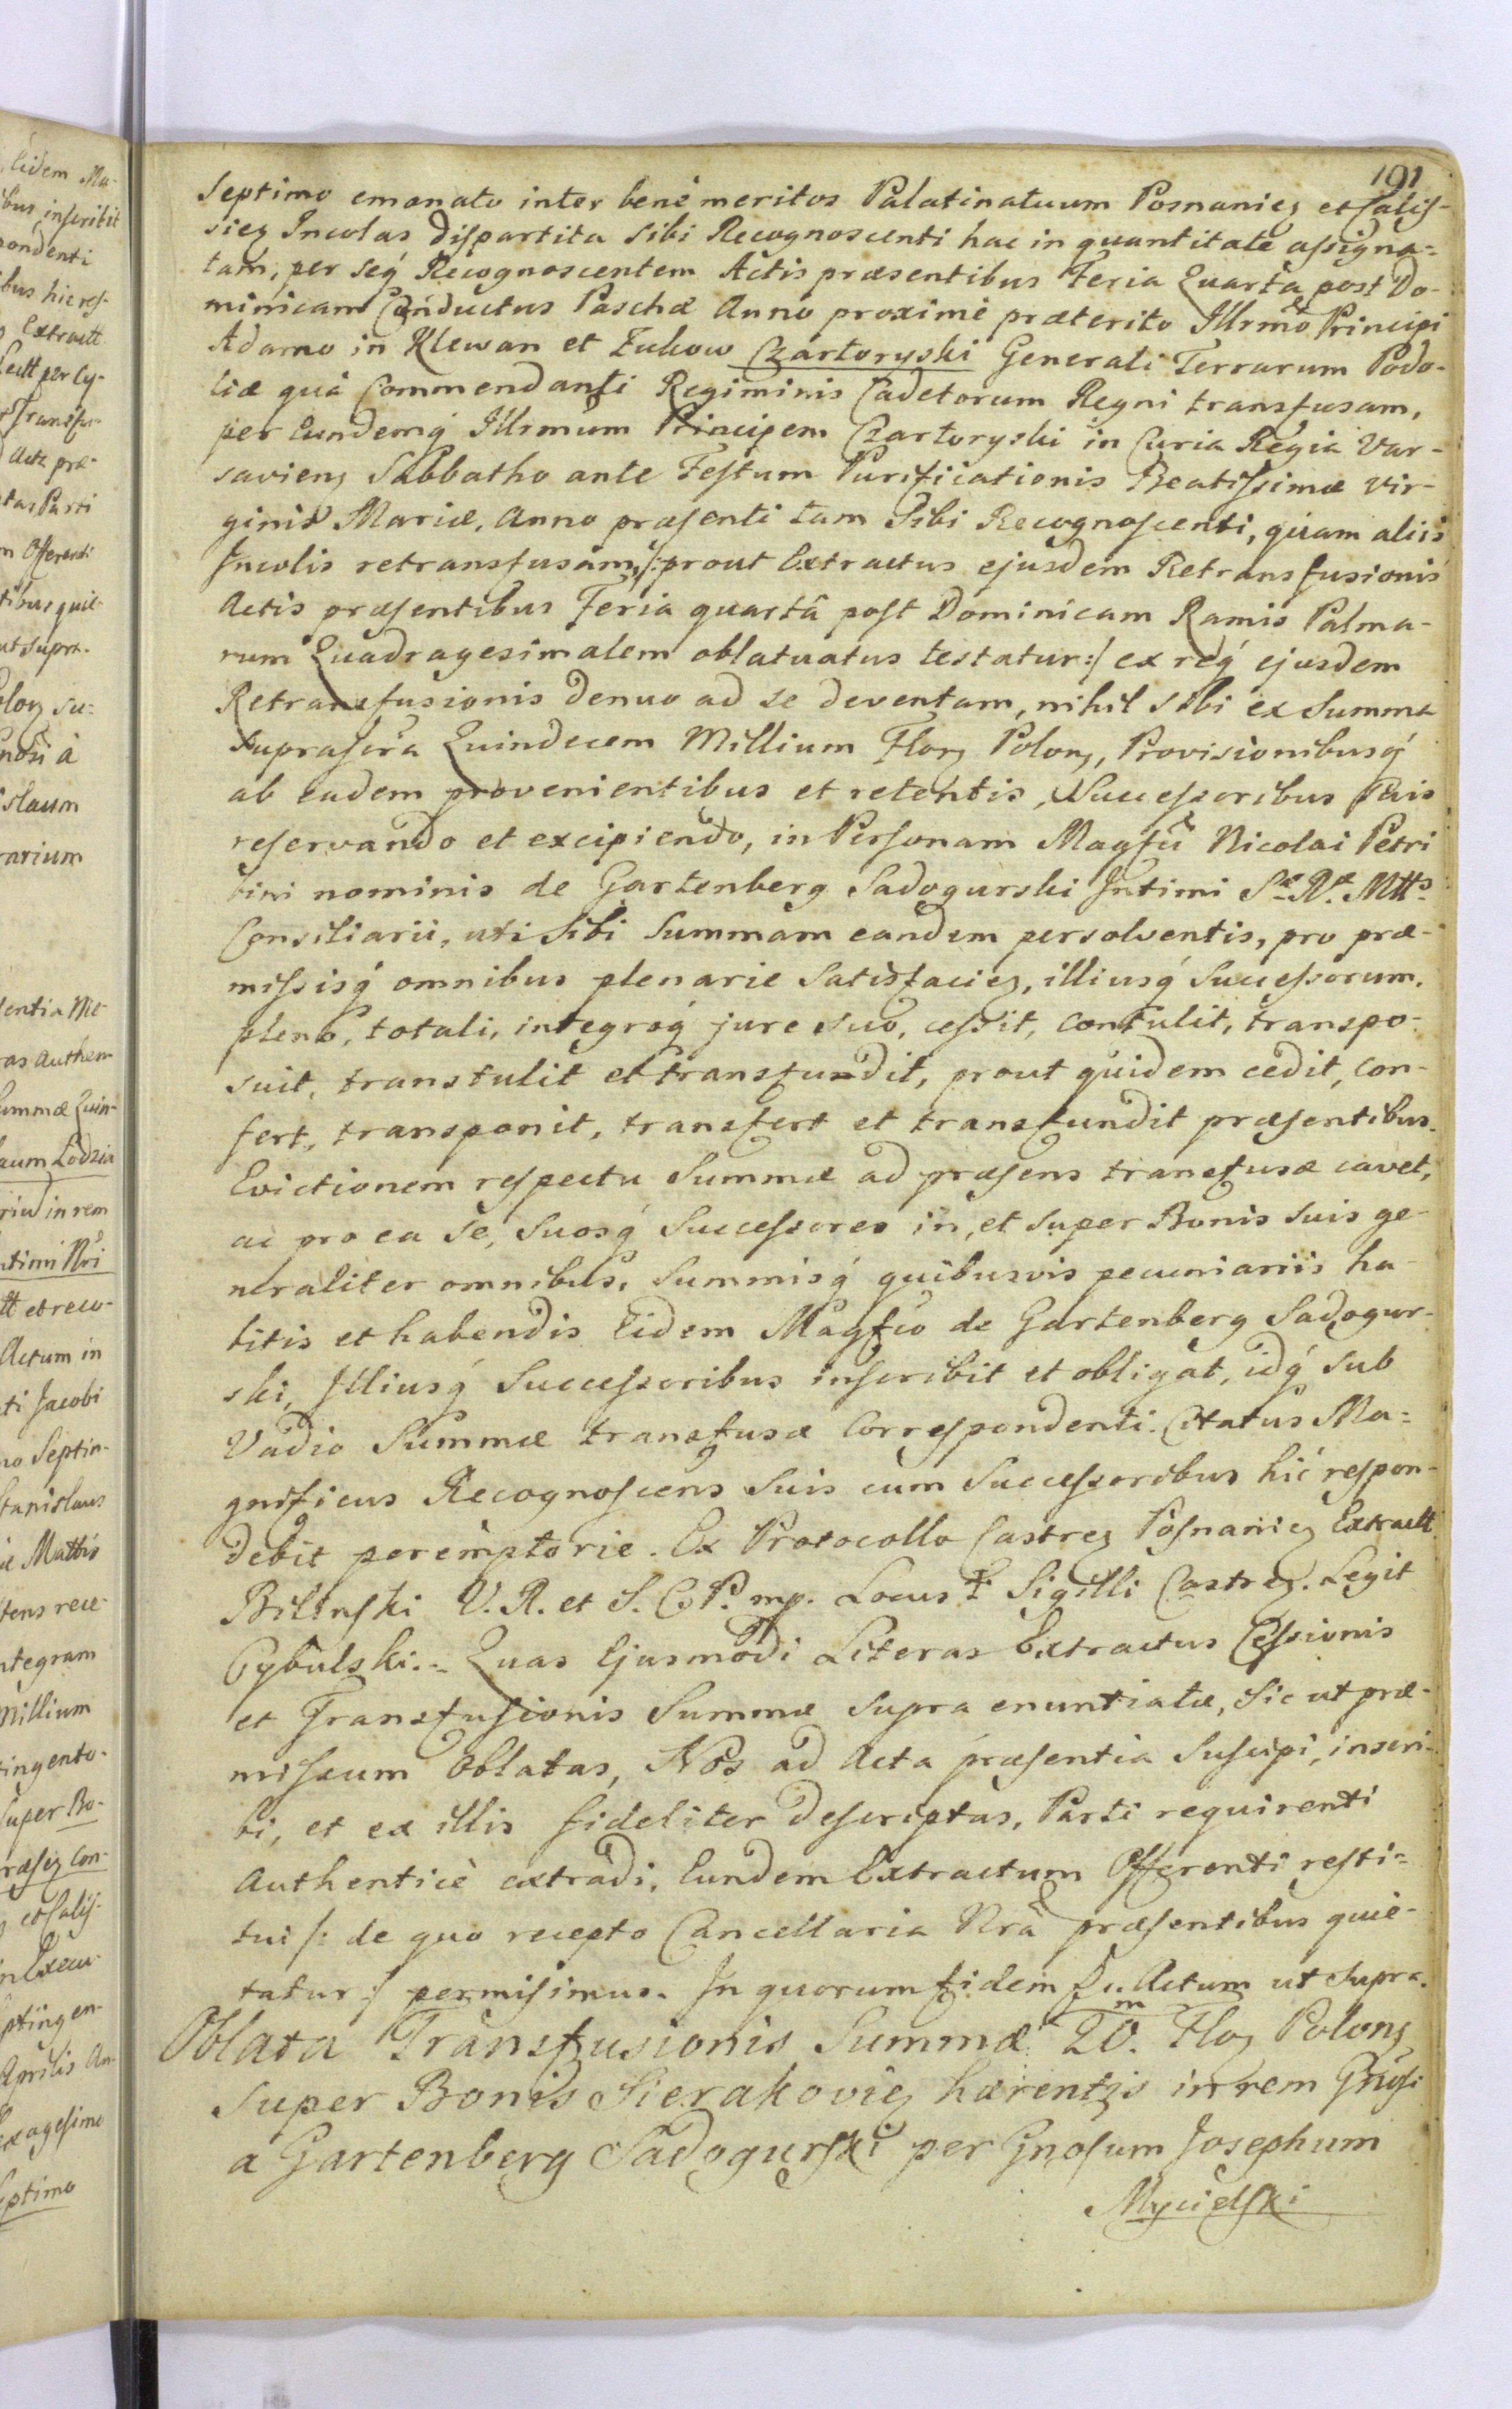 191
Septimo emanato inter benè meritos Palatinatuum Posnanieɜ et Calis-
sieɜ Incolas dispartita sibi Recognoscenti hac in quantitate assigna-
tam, per seq́ Recognoscentem Actis præsentibus Feria Quarta post Do-
minicam Conductus Paschæ Anno proxime præterito Illrmo Principi
Adamo in Klewan et Zukow Czartoryski Generali Terrarum Podo-
liæ quà Commendanti Regiminis Cadetorum Regni transfusam,
per Eundemq́ Illrmum Principem Czartoryski in Curia Regia Var-
savienɜ Sabbatho ante Festum Purificationis Beatissimæ Vir-
ginis Mariæ, Anno præsenti tam Sibi Recognoscenti, quam aliis
Incolis retransfusam, /: prout Extractus ejusdem Retransfusionis
Actis præsentibus Feria quartâ post Dominicam Ramis Palma-
rum Quadragesimalem oblatuatus testatur :/ ex req́ ejusdem
Retransfusionis denuo ad se deventam, nihil sibi ex Summa
suprascra Quindecem Millium Florɜ Polonɜ, Provisionibusq́
ab eadem provenientibus et retentis, Successoribus suis
reservando et excipiendo, in Personam Magfci Nicolai Petri
bini nominis de Gartenberg Sadogurski Intimi Sæ Ræ Mttis
Consiliarii, uti Sibi Summam eandem persolventis, pro præ-
missisq́ omnibus plenarie Satisfacieɜ, illiusq́ Successorum.
pleno, totali, integroq́ jure suo, cessit, contulit, transpo-
suit, transtulit et transfundit, prout quidem cedit, con-
fert, transponit, transfert et transfundit præsentibus.
Evictionem respectu Summæ ad præsens transfusæ cavet,
ac pro ea se, suosq́ Successores in, et super Bonis suis ge-
neraliter omnibus, Summisq́ quibusvis pecuniariis ha-
bitis et habendis Eidem Magfco de Gartenberg Sadogur-
ski, Illiusq́ Successoribus inscribit et obligat, idq́ sub
Vadio Summæ transfusæ Correspondenti. Citatus Ma-
gnificus Recognoscens Suis cum Successoribus hic respon-
debit peremptorie. Ex Protocollo Castreɜ Posnanieɜ Extractt.
Bilinski V.R. et S. C. P. mp. Locus Sigilli Castreɜ. Legit
Cybulski.- Quas Ejusmodi Literas Extractus Cessionis
et Transfusionis Summæ supra enuntiatæ, sic ut præ-
missum Oblatas, Nos ad Acta præsentia suscipi, inscri-
bi, et ex illis fideliter descriptas, Parti requirenti
Authenticè extradi. Eundem Extractum Offerenti resti-
tui /: de quo recepto Cancellaria Nra præsentibus quie-
tatur :/ permisimus. In quorum fidem Actum ut supra.
Oblata Transfusionis Summæ 20.m Floɜ Polonɜ
super Bonis Sierakovieɜ hærentis in rem Gnosi
a Gartenberg Sadogurski per Gnosum Josephum
Mycielski